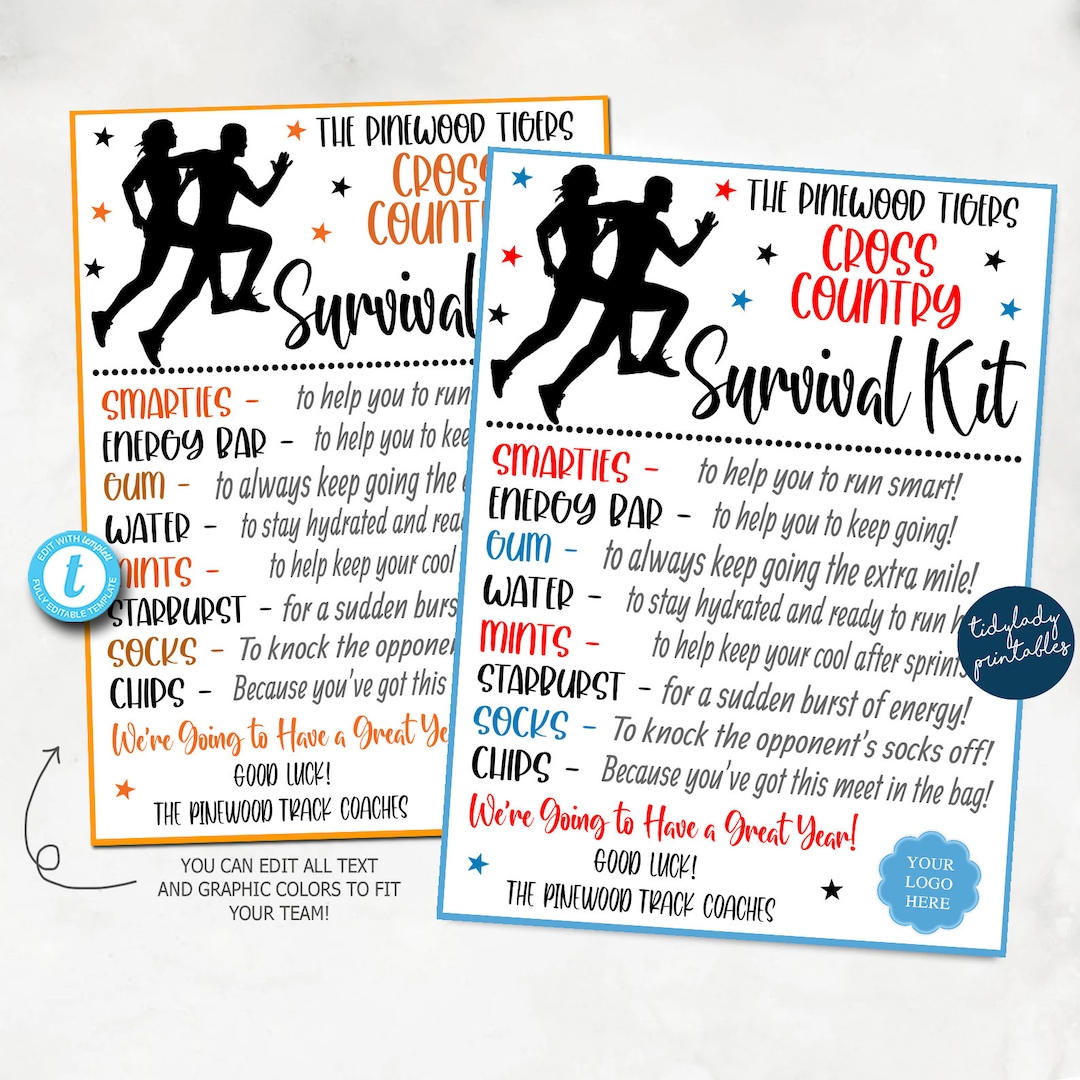 THE PINEWOOD TIGERS
CROSS
COUNT
Survival
SMARTIES - to help you to run
ENERGY BAR - to help you to kee
GUM - to always keep going the
WATER - to stay hydrated and rea
MINTS - to help keep your cool
STARBURST - for a sudden burs
SOCKS - To knock the opponen
CHIPS - Because you've got this
We're Going to Have a Great Ye
GOOD LUCK!
THE PINEWOOD TRACK COACHES
EDIT WITH templett
t
FULLY EDITABLE TEMPLATE
YOU CAN EDIT ALL TEXT
AND GRAPHIC COLORS TO FIT
YOUR TEAM!
THE PINEWOOD TIGERS
CROSS
COUNTRY
Survival Kit
SMARTIES - to help you to run smart!
ENERGY BAR - to help you to keep going!
GUM - to always keep going the extra mile!
WATER - to stay hydrated and ready to run h
MINTS - to help keep your cool after sprint
STARBURST - for a sudden burst of energy!
SOCKS - To knock the opponent's socks off!
CHIPS - Because you've got this meet in the bag!
We're Going to Have a Great Year!
GOOD LUCK!
THE PINEWOOD TRACK COACHES
YOUR
LOGO
HERE
tidylady
printables